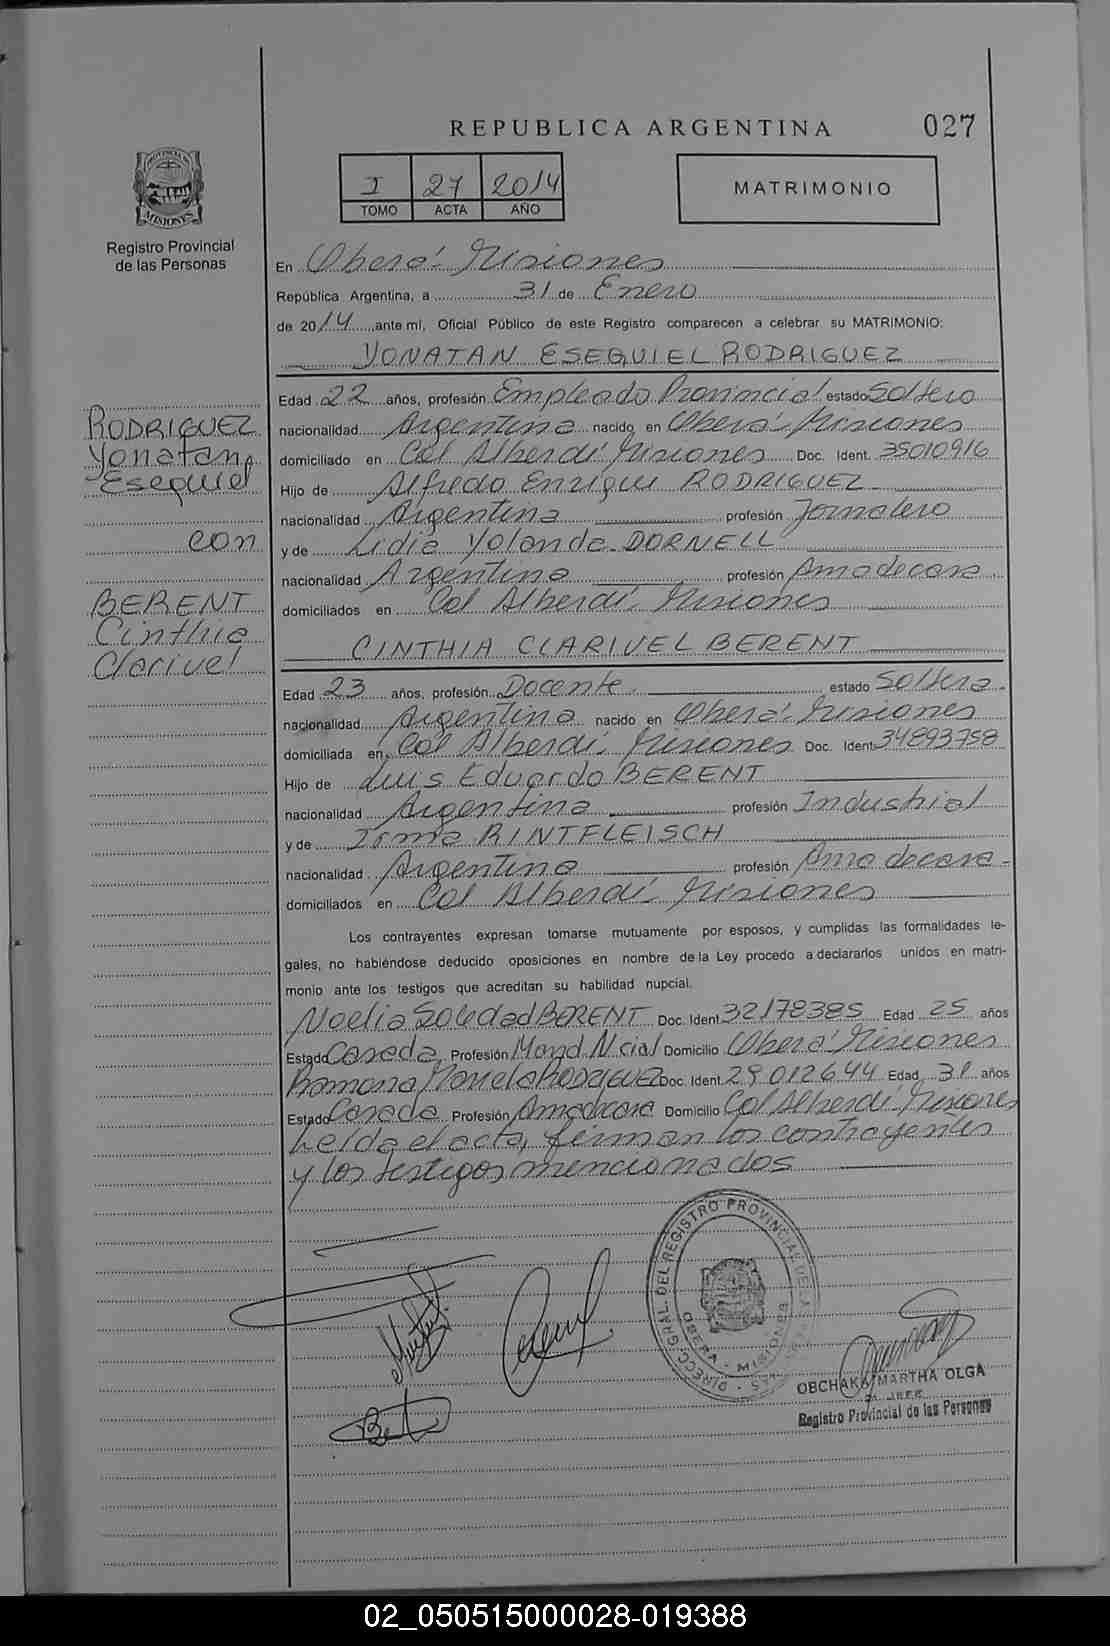 REPUBLICA ARGENTINA 027
PROVINCIA DE MISIONES
Registro Provincial
de las Personas
I 27 2014
TOMO ACTA AÑO
MATRIMONIO
En Oberá Misiones
República Argentina, a 31 de Enero
de 2014 ,ante mí, Oficial Público de este Registro comparecen a celebrar su MATRIMONIO:
YONATAN ESEQUIEL RODRIGUEZ
RODRIGUEZ
Yonatan
Esequiel
con
BERENT
Cinthia
Clarivel
Edad 22 años, profesión Empleado Provincial estado Soltero
nacionalidad Argentina nacido en Oberá Misiones
domiciliado en Col Alberdi Misiones Doc. Ident. 35010916
Hijo de Alfredo Enrique RODRIGUEZ
nacionalidad Argentina profesión Jornalero
y de Lidia Yolanda DORNELL
nacionalidad Argentina profesión Ama de casa
domiciliados en Col Alberdi Misiones
CINTHIA CLARIVEL BERENT
Edad 23 años, profesión Docente estado Soltera
nacionalidad Argentina nacido en Oberá Misiones
domiciliada en Col Alberdi Misiones Doc. Ident 34893758
Hijo de Luis Eduardo BERENT
nacionalidad Argentina profesión Industrial
y de Irma RINTFLEISCH
nacionalidad Argentina profesión Ama de casa
domiciliados en Col Alberdi Misiones
Los contrayentes expresan tomarse mutuamente por esposos, y cumplidas las formalidades le-
gales, no habiéndose deducido oposiciones en nombre de la Ley procedo a declararlos unidos en matri-
monio ante los testigos que acreditan su habilidad nupcial.
Noelia Soledad BERENT Doc. Ident. 32178385 Edad 25 años
Estado Casada Profesión Domicilio Oberá Misiones
Ramona RODRIGUEZ Doc. Ident. 29012644 Edad 31 años
Estado Casada Profesión Ama de casa Domicilio Col Alberdi Misiones
Leída el acta, firman los contrayentes
y los testigos mencionados
DIRECC. GRAL. DEL REGISTRO PROVINCIAL DE LAS PERSONAS
OBERA - MISIONES
OBCHAKA MARTHA OLGA
JEFE
Registro Provincial de las Personas
02_050515000028-019388